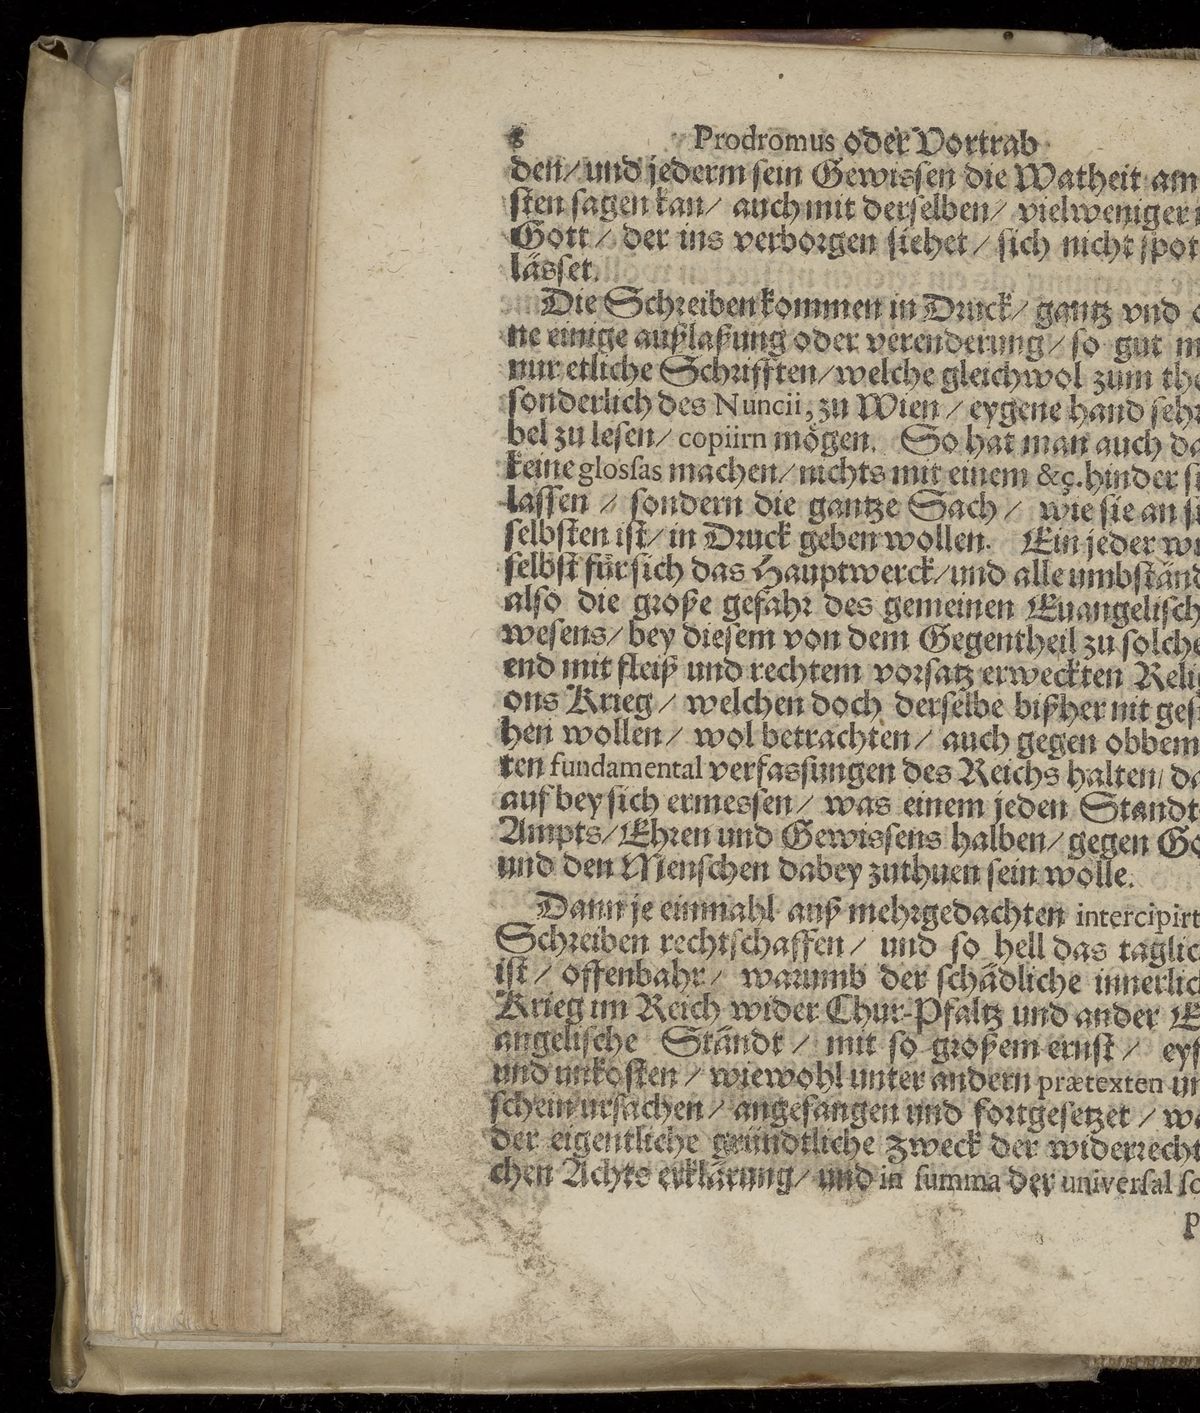 8 Prodromus oder Vortrab
den/ und jederm sein Gewissen die Watheit am
sten sagen kan/ auch mit derselben/ vielweniger
Gott/ der ins verborgen siehet/ sich nicht spot
lässet.
Die Schreiben kommen in Druck/ gantz vnd o
ne einige außlaßung oder verenderung/ so gut m
nur etliche Schrifften/ welche gleichwol zum the
sonderlich des Nuncii, zu Wien/ eygene hand sehr
bel zu lesen/ copiirn mögen. So hat man auch da
keine glossas machen/ nichts mit einem &ç. hinder si
lassen/ sondern die gantze Sach/ wie sie an si
selbsten ist/ in Druck geben wollen. Ein jeder wi
selbst für sich das Hauptwerck/ und alle umbständ
also die große gefahr des gemeinen Euangelisch
wesens/ bey diesem von dem Gegentheil zu solche
end mit fleiß und rechtem vorsatz erweckten Reli
ons Krieg/ welchen doch derselbe bißher nit gest
hen wollen/ wol betrachten/ auch gegen obbem
ten fundamental verfassungen des Reichs halten/ da
auf bey sich ermessen/ was einem jeden Standt
Ampts/ Ehren und Gewissens halben/ gegen Go
und den Menschen dabey zuthuen sein wolle.
Dann je einmahl auß mehrgedachten intercipirt
Schreiben rechtschaffen/ und so hell das taglic
ist/ offenbahr/ warumb der schädliche innerlic
Krieg im Reich wider Chur-Pfaltz und ander E
angelische Ständt/ mit so großem ernst/ eyf
und unkosten/ wiewohl unter andern prætexten un
schein ursachen/ angefangen und fortgesetzet/ wa
der eigentliche gründtliche zweck der widerrecht
chen Achts erklärung/ und in summa der universal sc
p